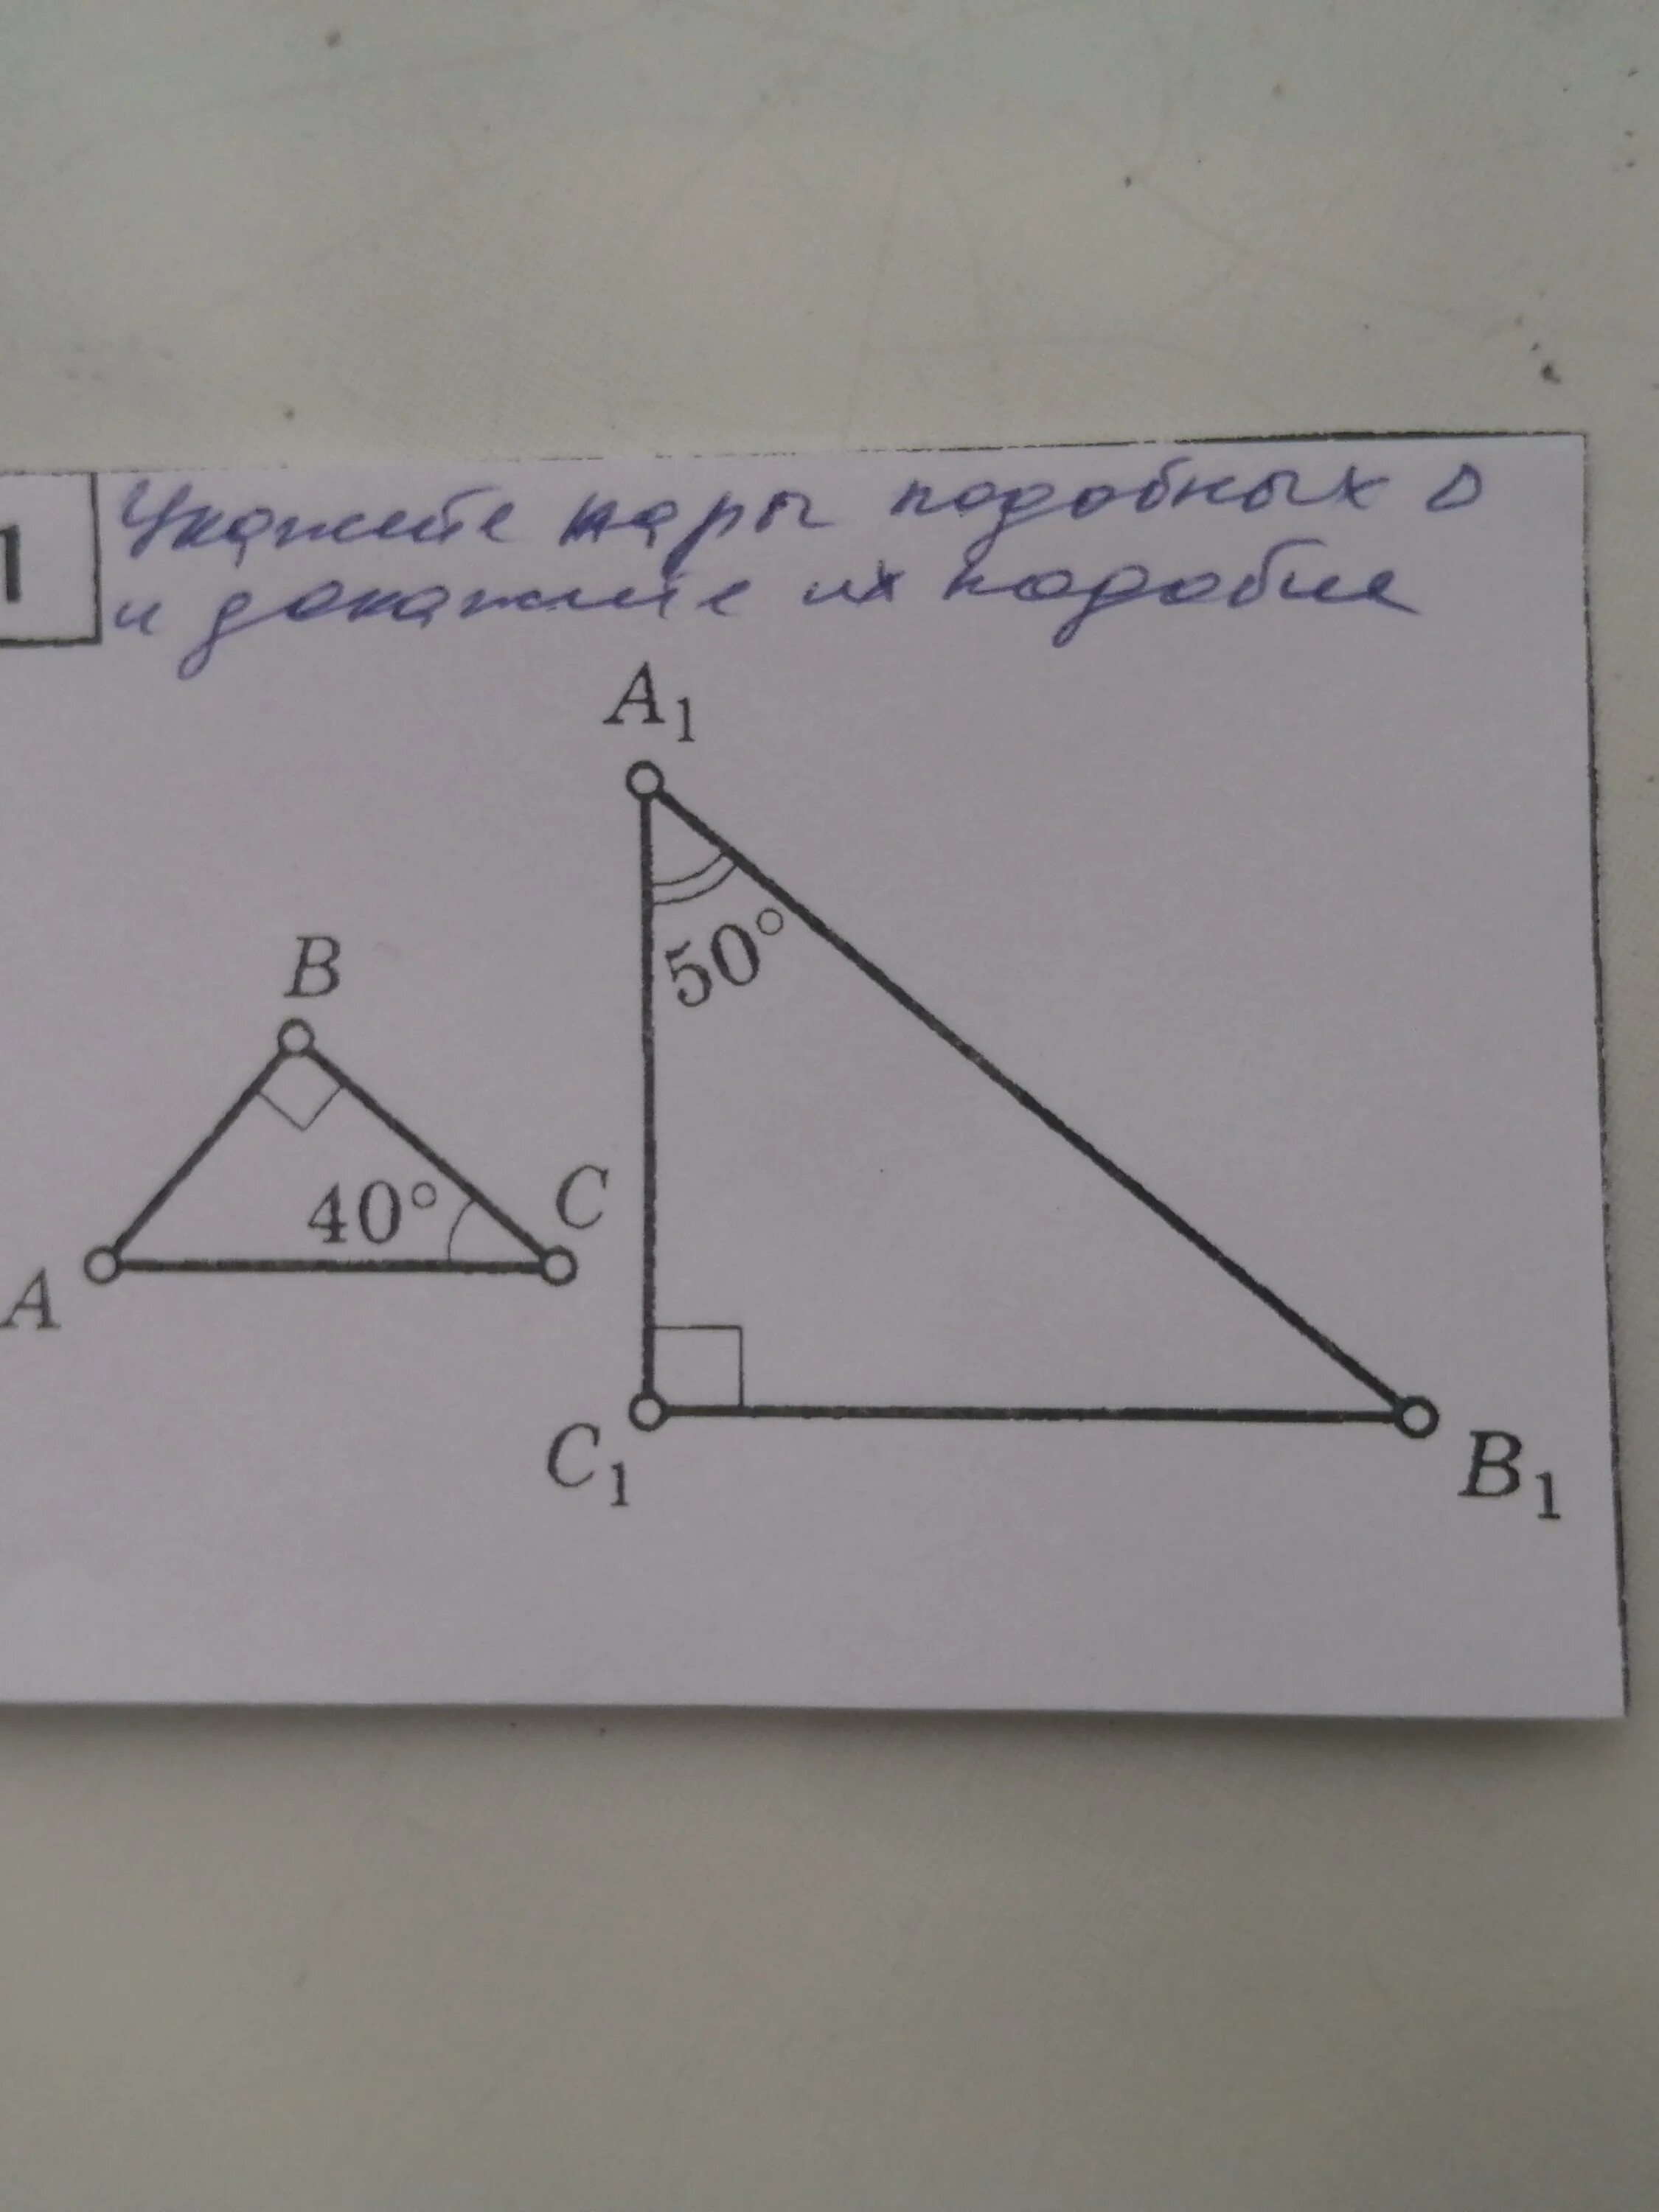 1
Укажите пары подобных Δ
и докажите их подобие
A₁
50°
B
40°
C
A
C₁
B₁